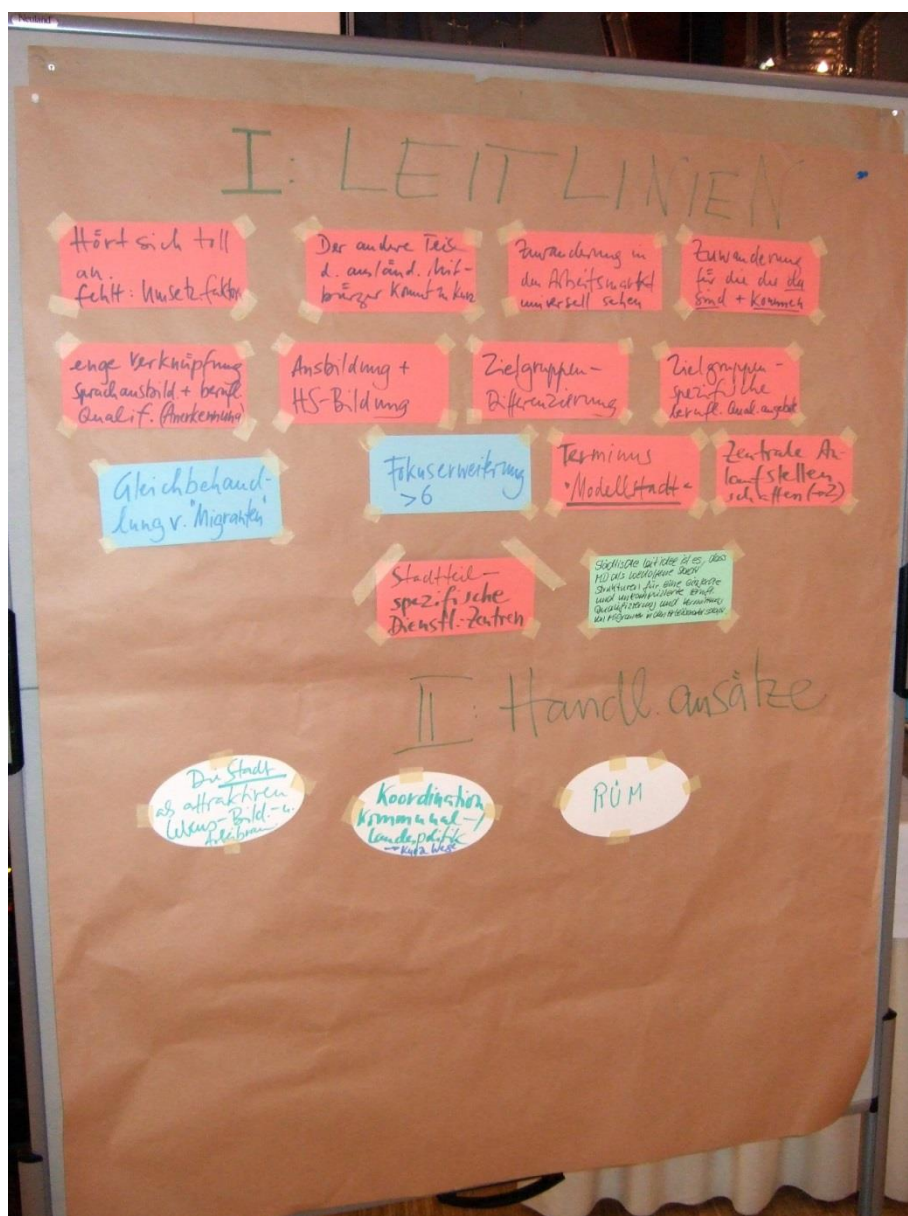 Neuland
I: LEITLINIEN
Hört sich toll
an.
fehlt: Umsetz.faktor
Der andere Teil
d. ausländ. Mit-
bürger kommt zu kurz
Zuwanderung in
den Arbeitsmarkt
universell sehen
Zuwanderung
für die die da
sind + kommen
enge Verknüpfung
Sprachausbild. + berufl.
Qualif. (Anerkennung)
Ausbildung +
HS-Bildung
Zielgruppen-
Differenzierung
Zielgruppen-
spezifische
berufl. Qual.angebote
Gleichbehand-
lung v. "Migranten"
Fokuserweiterung
>6
Terminus
"Modellstadt"
Zentrale An-
laufstellen
schaffen
Stadtteil-
spezifische
Dienstl.-Zentren
Städtische Leitidee ist es, dass
MD als weltoffene Stadt
Strukturen für eine
und unkomplizierte berufl.
Qualifizierung und Vermittlung
von Migranten in den
II: Handl.ansätze
Die Stadt
als attraktiven
Lebens-, Bild.- u.
Koordination
Kommunal-/
Landespolitik
→ kurze Wege
RÜM